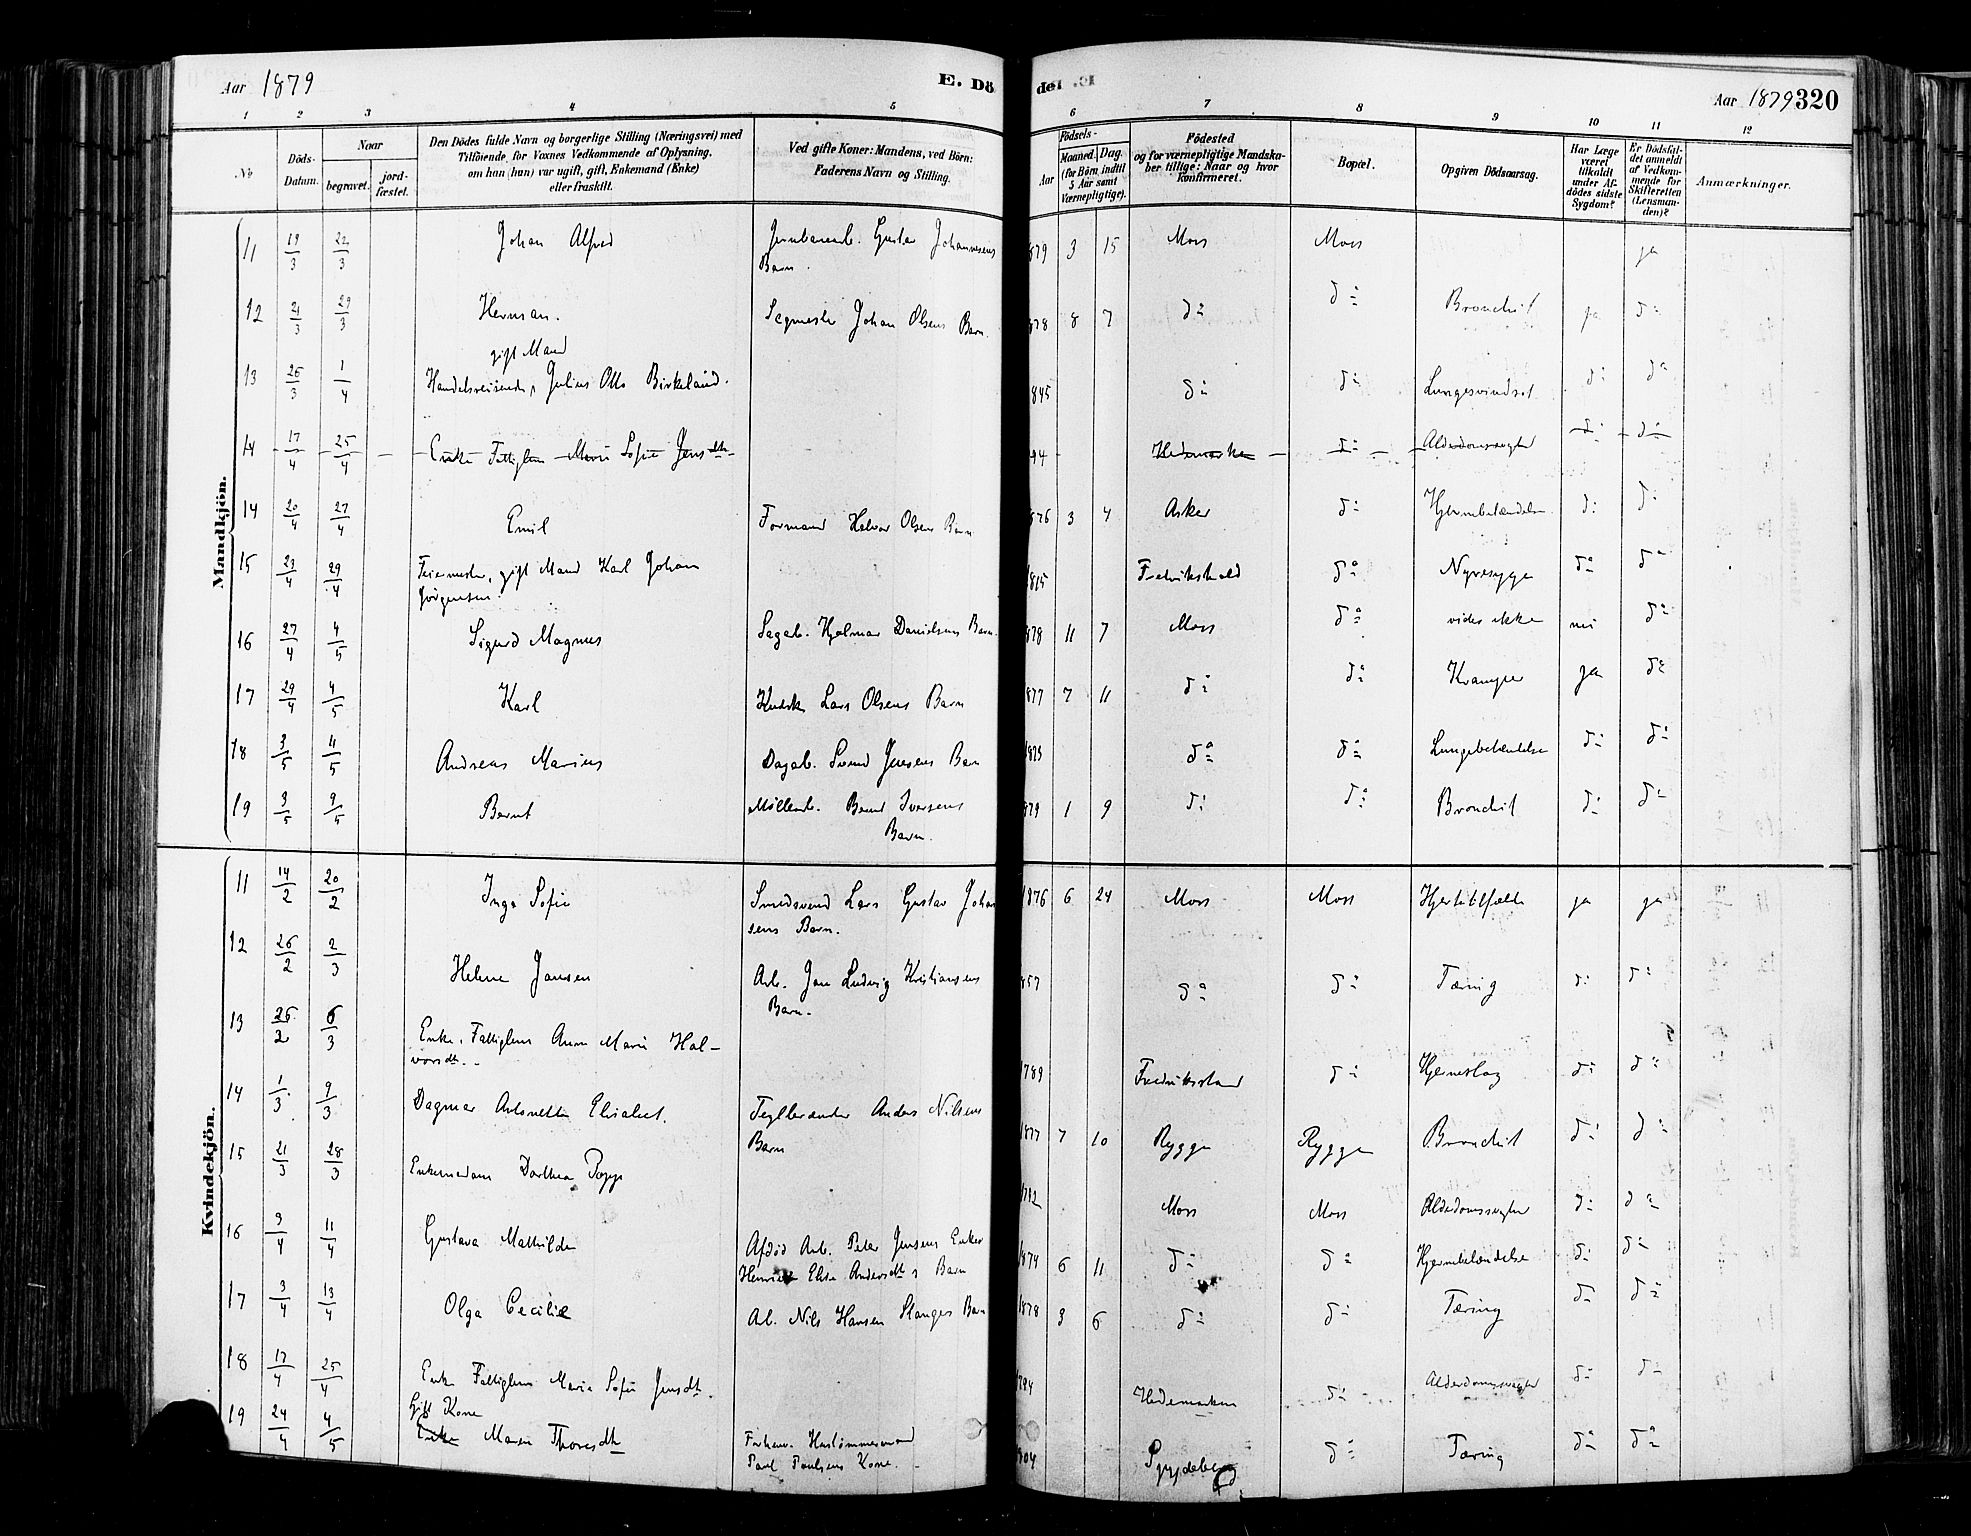 Aar 1879
E. Dö
del
Aar 1879 320
1 2 3 4 5 6 7 8 9 10 11 12
No
Döds-Datum.
Naar
begravet.
jord-fæstet.
Den Dödes fulde Navn og borgerlige Stilling (Næringsvei) med
Tilföiende for Voxnes Vedkommende af Oplysning,
om han (hun) var ugift, gift, Enkemand (Enke)
eller fraskilt.
Ved gifte Koner: Mandens, ved Börn:
Faderens Navn og Stilling.
Födsels-
Aar
Maaned. Dag.
(for Börn indtil
5 Aar samt
Værnepligtige).
Födested
og for værnepligtige Mandska-
ber tillige: Naar og hvor
konfirmeret.
Bopæl.
Opgiven Dödsaarsag.
Har Læge
været
tilkaldt
under Af-
dödes sidste
Sygdom?
Er Dödsfal-
det anmeldt
af Vedkom-
mende for
Skifteretten
(Lensman-
den)?
Anmærkninger.
Mandkjön.
11 19/3 22/3 Johan Alfred Jernbanearb. Gustav Johannesens 879 3 15 Moss Moss ja
Barn.
12 21/3 29/3 Herman. Segmester Johan Olsens Barn 878 8 7 do do Bronchit ja do
gift Mand
13 26/3 1/4 Handelsreisende, Julius Otto Birkeland. 845 do do Lungesvindsot do do
14 17/4 25/4 Enke Fattiglem Marie Sofie Jensdtr 94 Hedemarken do Alderdomssvaghed do do
14 20/4 27/4 Emil Formand Halvor Olsens Barn 876 3 4 Asker do Hjernebetændelse do do
15 23/4 29/4 Feiermester, gift Mand Karl Johan 1815 Fredrikshald do Nyresyge do do
Jörgensen
16 27/4 4/5 Sigurd Magnus Sagarb. Hjalmar Danielsens Barn. 878 11 7 Moss do vides ikke nei do
17 29/4 4/5 Karl Lars Olsens Barn 877 7 11 do do Kramper ja do
18 3/5 11/5 Andreas Marius Dagarb. Svend Jensens Barn 1873 do do Lungebetændelse do do
19 3/5 9/5 Bernt Möllerarb. Bernt Iversens 879 1 9 do do Bronchit do do
Barn.
Kvindekjön.
11 14/2 20/2 Inga Sofie Smedsvend Lars Gustav Johan 1876 6 24 Moss Moss Hjertetilfælde ja ja
sens Barn.
12 26/2 2/3 Helene Jansen Arb. Jan Ludvig Kristiansens 857 do do Tæring do do
Barn.
13 26/2 6/3 Enke, Fattiglem Anne Marie Hal- 1789 Fredriksstad do Hjerneslag do do
vorsdtr.
14 1/3 9/3 Dagmar Antonette Elisabet. Teglbrænder Anders Nilsens 1877 7 10 Rygge Rygge Bronchit do do
Barn
15 21/3 28/3 Enkemadam Dorthea Popp 1792 Moss Moss Alderdomssvaghed do do
16 9/4 11/4 Gustava Mathilde Afdöd Arb. Peter Jensens Enke 1874 6 11 do do Hjernebetændelse do do
Henriette Elise Andersdtrs Barn
17 3/4 13/4 Olga Cecilie Arb. Nils Hansen Stanges Barn 1878 3 6 do do Tæring do do
18 17/4 25/4 Enke Fattiglem Marie Sofie Jensdtr. 1794 Hedemarken do Alderdomssvaghed do do
Gift Kone
19 24/4 4/5 Enke Maren Thoresdtr Forhenv. 804 Spydeberg do Tæring do do
Paul Paulsens Kone.